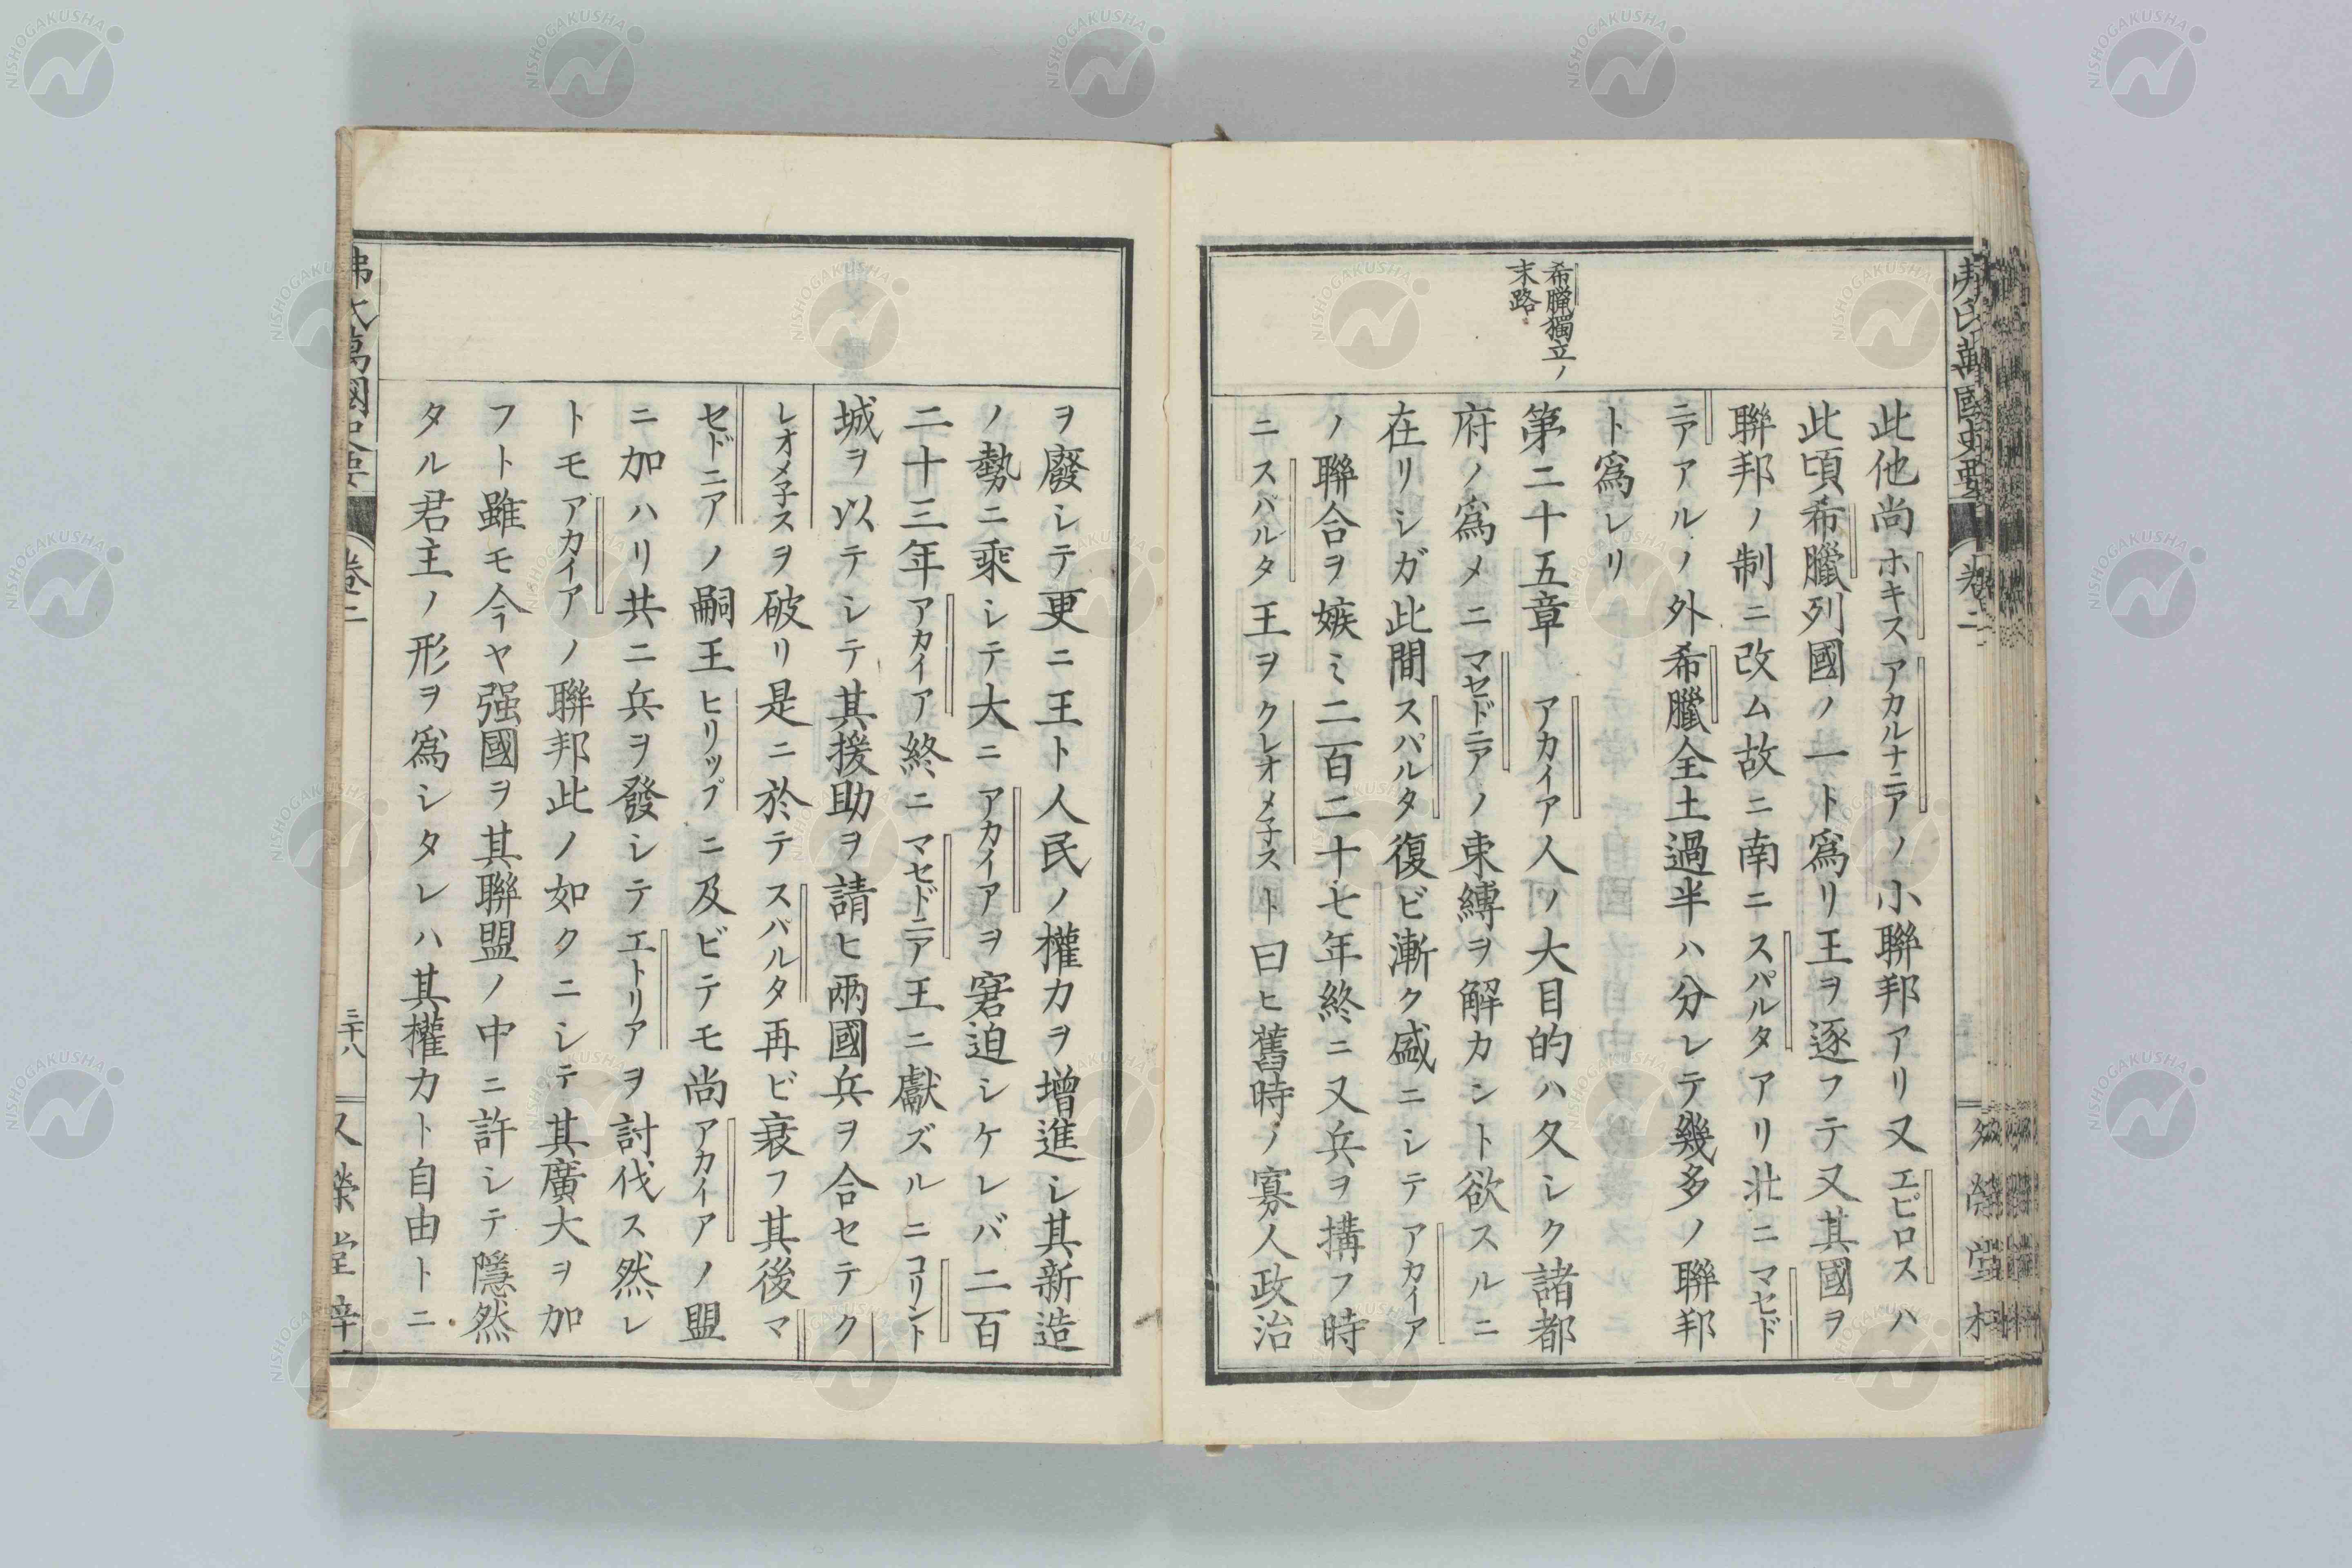 此他尚ホキスアカルナニアノ小聯邦アリ又エピロスハ
此頃希臘列國ノ一ト爲リ王ヲ逐フテ又其國ヲ
聯邦ノ制ニ改ム故ニ南ニスパルタアリ北ニマセド
ニアアルノ外希臘全土過半ハ分レテ幾多ノ聯邦
ト爲レリ
希臘獨立ノ
末路
第二十五章 アカイア人ノ大目的ハ久シク諸都
府ノ爲メニマセドニアノ束縛ヲ解カント欲スルニ
在リシガ此間スパルタ復ビ漸ク盛ニシテアカイア
ノ聯合ヲ嫉ミ二百二十七年終ニ又兵ヲ搆フ時
ニスパルタ王ヲクレオメ子スト曰ヒ舊時ノ寡人政治
ヲ廢シテ更ニ王ト人民ノ權力ヲ增進シ其新造
ノ勢ニ乘シテ大ニアカイアヲ窘迫シケレバ二百
二十三年アカイア終ニマセドニア王ニ獻ズルニコリント
城ヲ以テシテ其援助ヲ請ヒ兩國兵ヲ合セテク
レオメ子スヲ破リ是ニ於テスパルタ再ビ衰フ其後マ
セドニアノ嗣王ヒリップニ及ビテモ尚アカイアノ盟
ニ加ハリ共ニ兵ヲ發シテエトリアヲ討伐ス然レ
トモアカイアノ聯邦此ノ如クニシテ其廣大ヲ加
フト雖モ今ヤ强國ヲ其聯盟ノ中ニ許シテ隱然
タル君主ノ形ヲ爲シタレハ其權力ト自由トニ
卷二
三十八
NISHOGAKUSHA